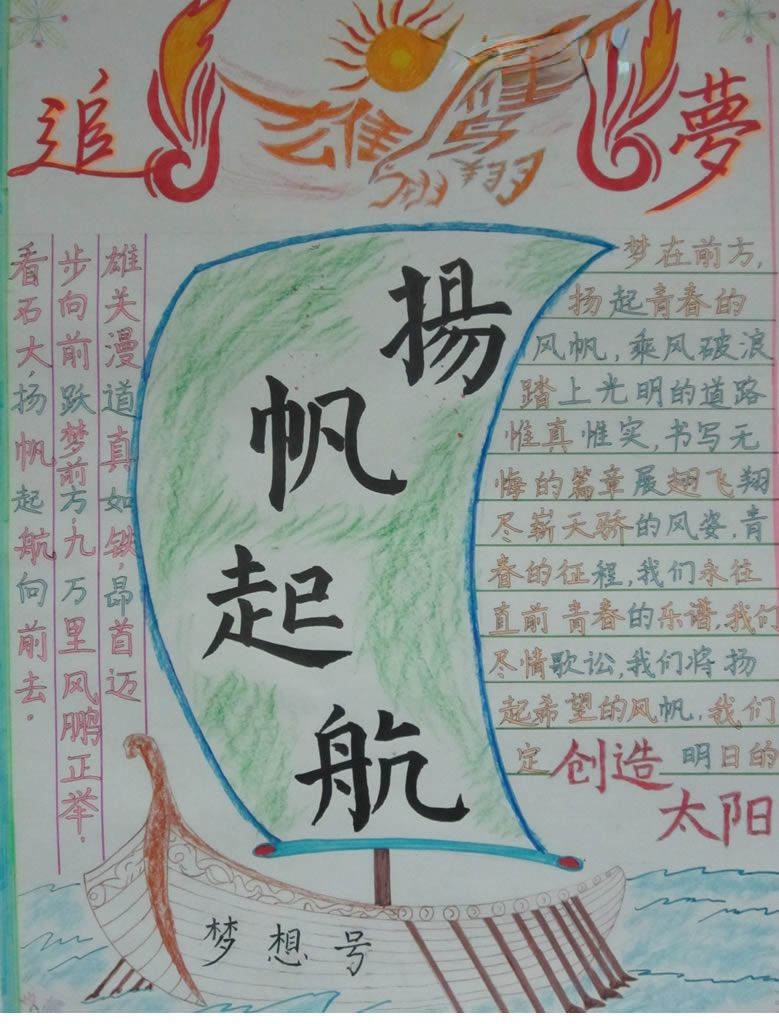 追
夢
雄
鹰
揚
帆
起
航
雄关漫道真如铁，昂首迈
步向前跃梦前方，九万里风鹏正举，
看石大，扬帆起航向前去。
梦在前方，
扬起青春的
风帆，乘风破浪
踏上光明的道路
惟真惟实，书写无
悔的篇章展翅飞翔
尽崭天骄的风姿，青
春的征程，我们永往
直前青春的乐谱，我们
尽情歌讼，我们将扬
起希望的风帆，我们
定创造明日的
太阳
梦想号